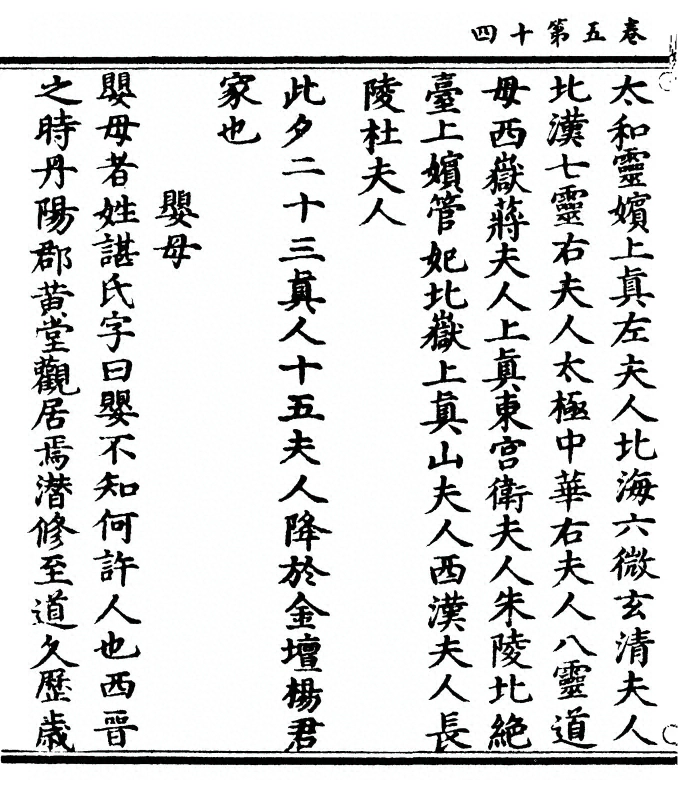 卷五第十四
太和靈嬪上真左夫人北海六微玄清夫人
北漢七靈右夫人太極中華右夫人八靈道
母西嶽蔣夫人上真東宮衛夫人朱陵北絶
臺上嬪管妃北嶽上真山夫人西漢夫人長
陵杜夫人
此夕二十三真人十五夫人降於金壇楊君
家也
嬰母
嬰母者姓諶氏字曰嬰不知何許人也西晉
之時丹陽郡黃堂觀居焉潛修至道久歷歲